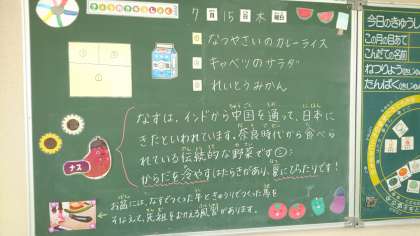 きょうのきゅうしょく
7月15日木曜日
なつやさいのカレーライス
キャベツのサラダ
れいとうみかん
なすは、インドから中国を通って、日本に
きたといわれています。奈良時代から食べら
れている伝統的な野菜です
からだを冷やすはたらきがあり、夏にぴったりです！
ナス
お盆には、なすでつくった牛ときゅうりでつくった馬を
そなえて、先祖をむかえる風習があります。
今日のきゅうし
この月の目あて
こんだての名前
ねつりょう
たんぱく